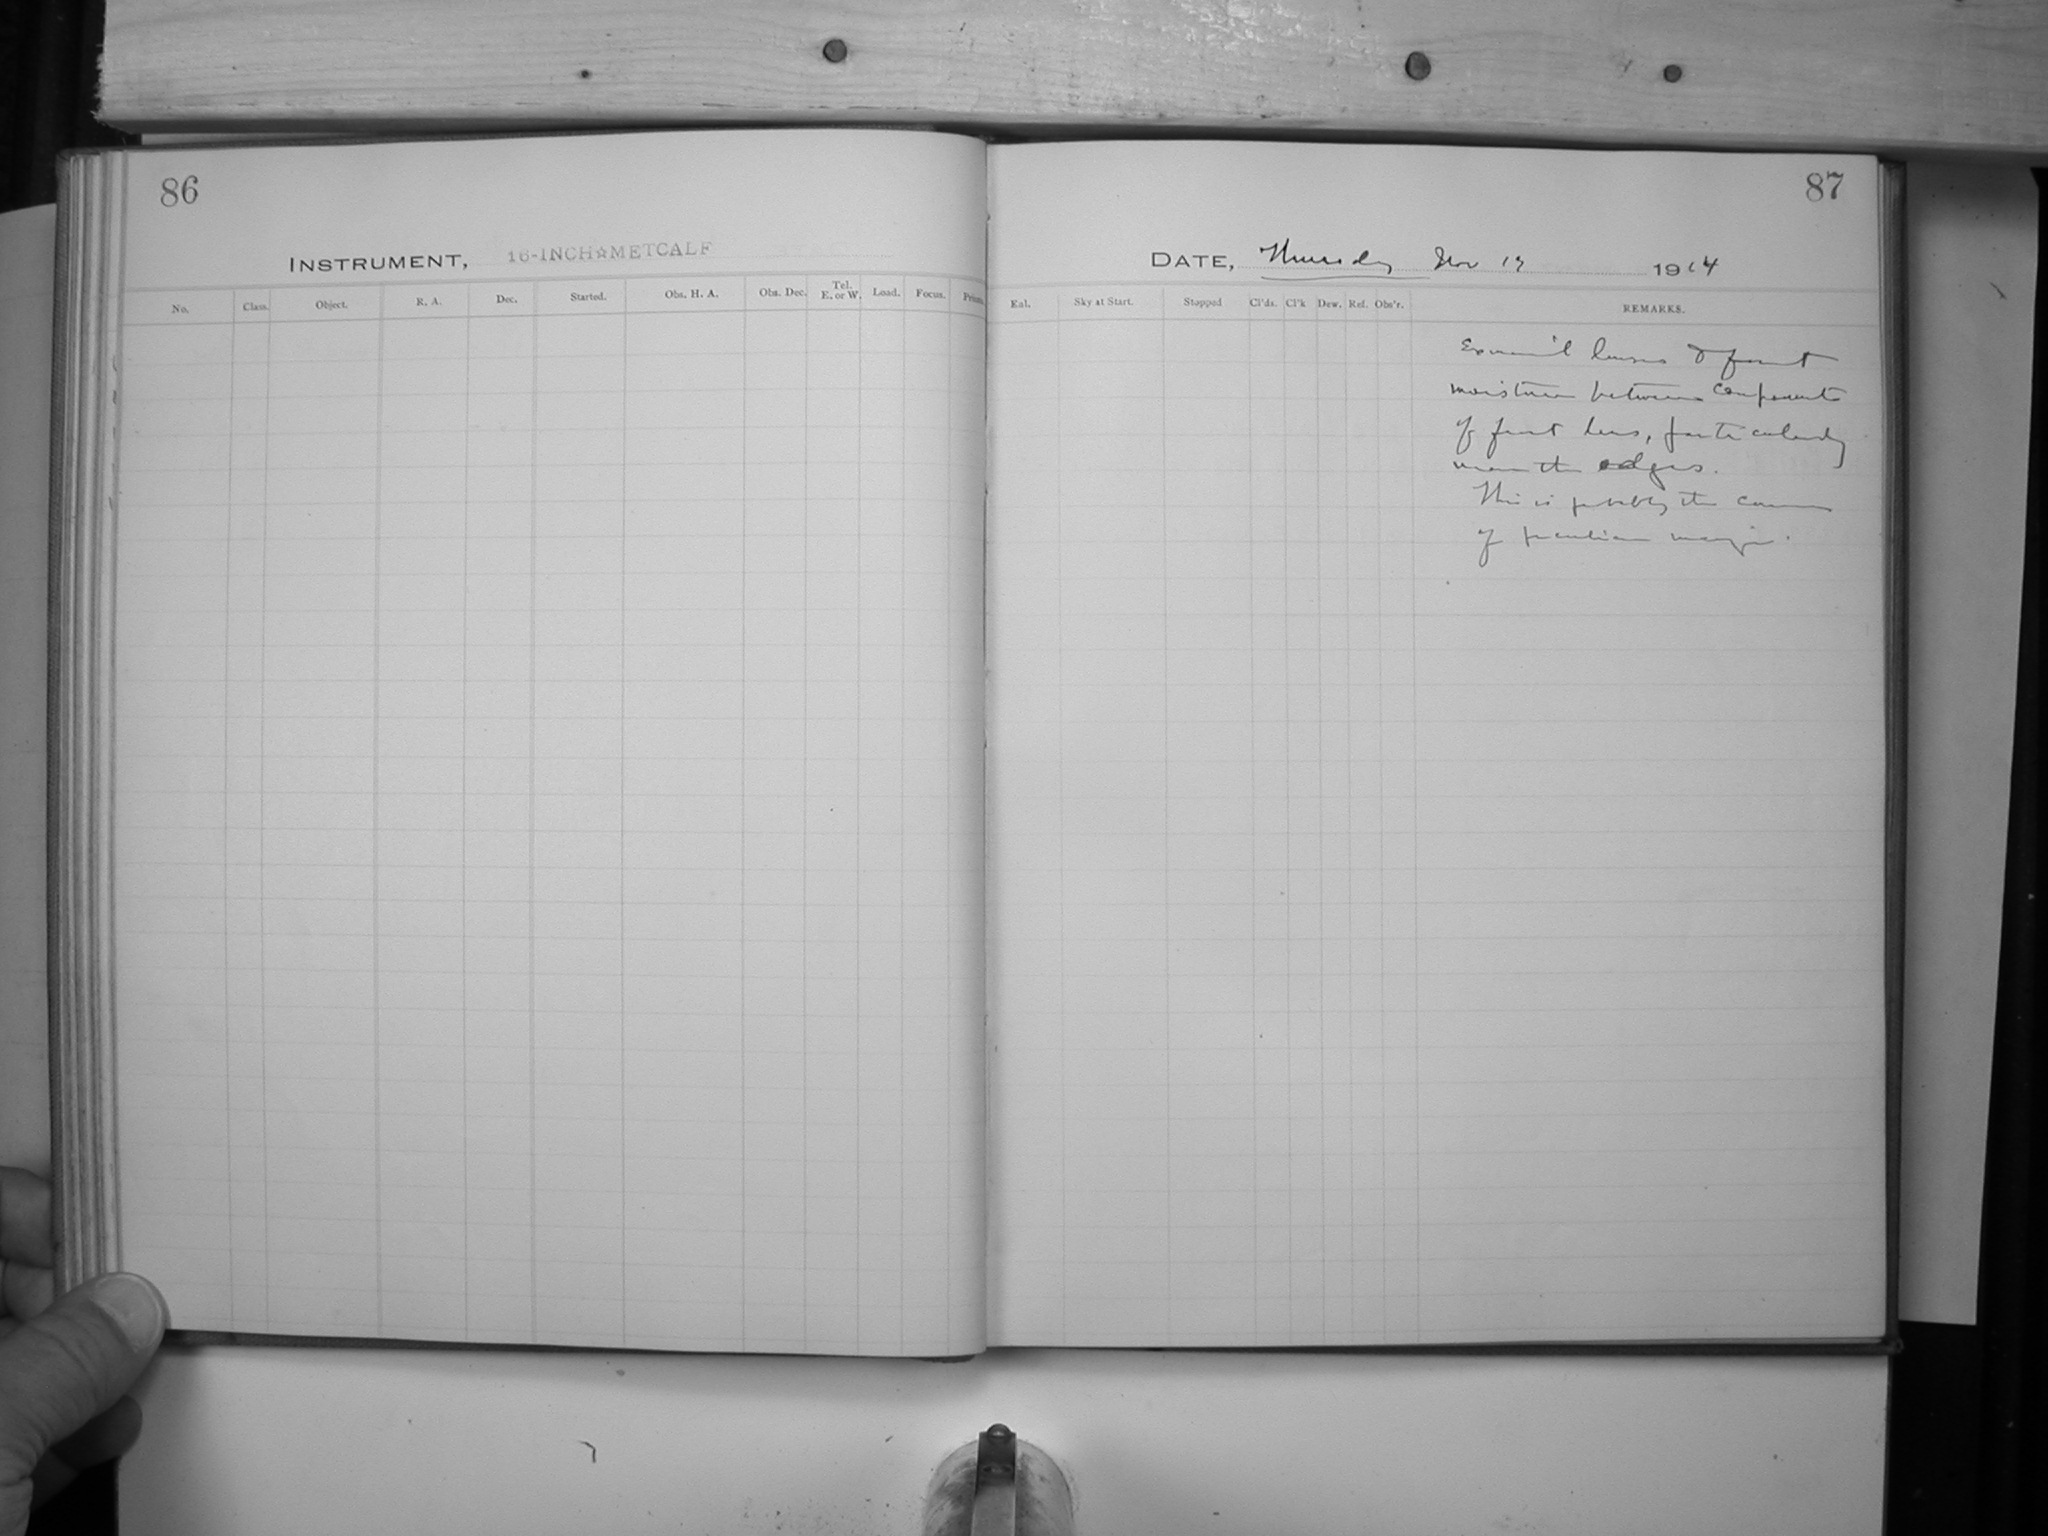 86
87
INSTRUMENT, 16-INCH☆METCALF
DATE, Thursday Nov 19 1914
No. Class. Object. R. A. Dec. Started. Obs. H. A. Obs. Dec. Tel. E. or W. Load. Focus. Prism.
Eul. Sky at Start. Stopped Cl'ds. Cl'k Dew. Ref. Obs'r. REMARKS.
Exam'd lenses & found
moisture between components
of front lens, particularly
near the edges.
This is probably the cause
of peculiar images.